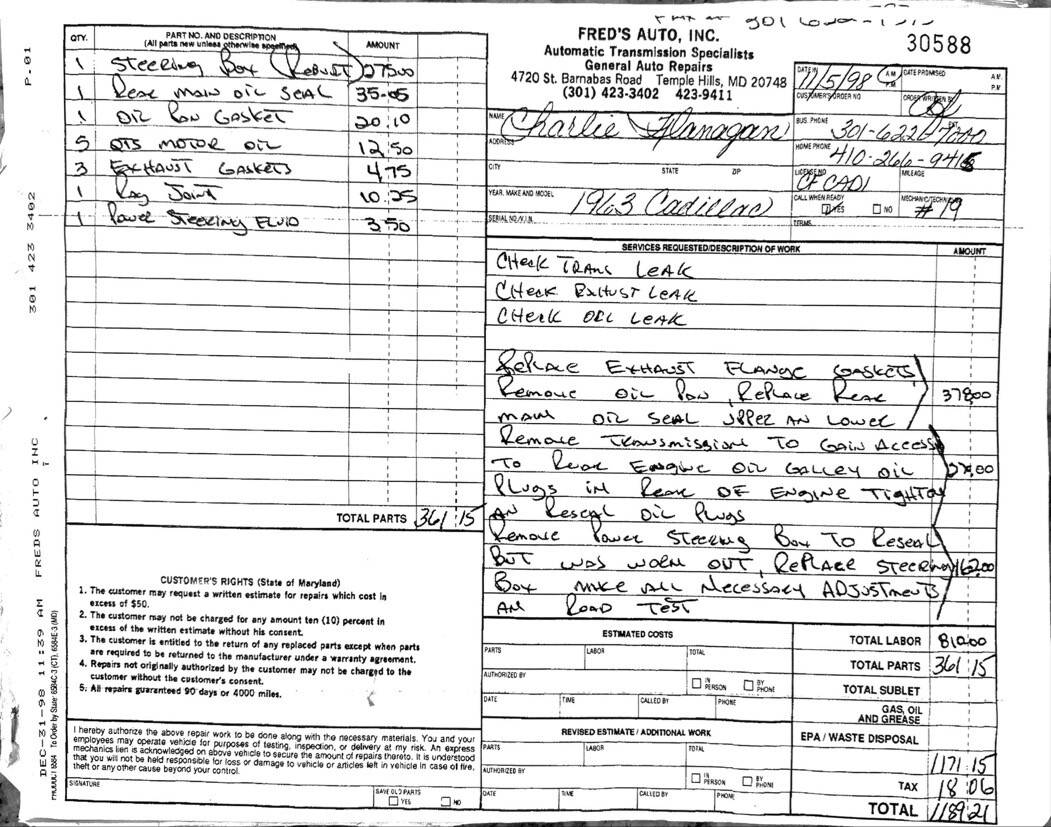 P.01
301 423 3402
FREDS AUTO INC
DEC-31-98 11:39 AM
To Order by State 6584C-3 (CT), 6584E-3 (MD)
QTY. PART NO. AND DESCRIPTION (All parts new unless otherwise specified) AMOUNT
1 Steering Box (Robust) 275 00
1 Rear main oil seal 35-05
1 Oil Pan Gasket 20 10
5 QTS motor oil 12 50
3 Exhaust Gaskets 4 75
1 Rag Joint 10 25
1 Power Steering Fluid 3 50
TOTAL PARTS 361 15
CUSTOMER'S RIGHTS (State of Maryland)
1. The customer may request a written estimate for repairs which cost in
excess of $50.
2. The customer may not be charged for any amount ten (10) percent in
excess of the written estimate without his consent.
3. The customer is entitled to the return of any replaced parts except when parts
are required to be returned to the manufacturer under a warranty agreement.
4. Repairs not originally authorized by the customer may not be charged to the
customer without the customer's consent.
5. All repairs guaranteed 90 days or 4000 miles.
I hereby authorize the above repair work to be done along with the necessary materials. You and your
employees may operate vehicle for purposes of testing, inspection, or delivery at my risk. An express
mechanics lien is acknowledged on above vehicle to secure the amount of repairs thereto. It is understood
that you will not be held responsible for loss or damage to vehicle or articles left in vehicle in case of fire,
theft or any other cause beyond your control.
SIGNATURE
SAVE OLD PARTS
YES NO
FRED'S AUTO, INC.
Automatic Transmission Specialists
General Auto Repairs
4720 St. Barnabas Road Temple Hills, MD 20748
(301) 423-3402 423-9411
30588
DATE IN 11/5/98 A.M. P.M. DATE PROMISED A.M. P.M.
CUSTOMER'S ORDER NO. ORDER WRITTEN BY
NAME Charlie Flanagan BUS. PHONE 301-622-
ADDRESS HOME PHONE 410-266-941
CITY STATE ZIP LICENSE NO. CF CAD1 MILEAGE
YEAR, MAKE AND MODEL 1963 Cadillac CALL WHEN READY YES NO MECHANIC/TECHNICIAN #19
SERIAL NO./V.I.N. TERMS
SERVICES REQUESTED/DESCRIPTION OF WORK AMOUNT
Check Trans Leak
Check Exhust Leak
Check Oil Leak
Replace Exhaust Flange Gaskets
Remove Oil Pan, Replace Rear 378 00
main oil seal upper an lower
Remove Transmission to gain access
to Rear Engine oil galley oil 00
Plugs in Rear of Engine Tighton
an Reseal oil Plugs
Remove Power Steering Box to Reseal
But was worn out, Replace Steering 162 00
Box make all necessary adjustments
an Road Test
ESTIMATED COSTS
PARTS LABOR TOTAL
AUTHORIZED BY IN PERSON BY PHONE
DATE TIME CALLED BY PHONE
REVISED ESTIMATE / ADDITIONAL WORK
PARTS LABOR TOTAL
AUTHORIZED BY IN PERSON BY PHONE
DATE TIME CALLED BY PHONE
TOTAL LABOR 810 00
TOTAL PARTS 361 15
TOTAL SUBLET
GAS, OIL AND GREASE
EPA / WASTE DISPOSAL
1171 15
TAX 18 06
TOTAL 1189 21